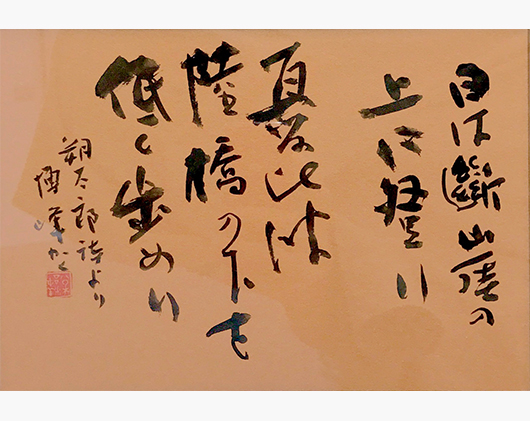 日は斷崖の
上に登り
憂ひは
陸橋の下を
低く歩めり
朔太郎詩より